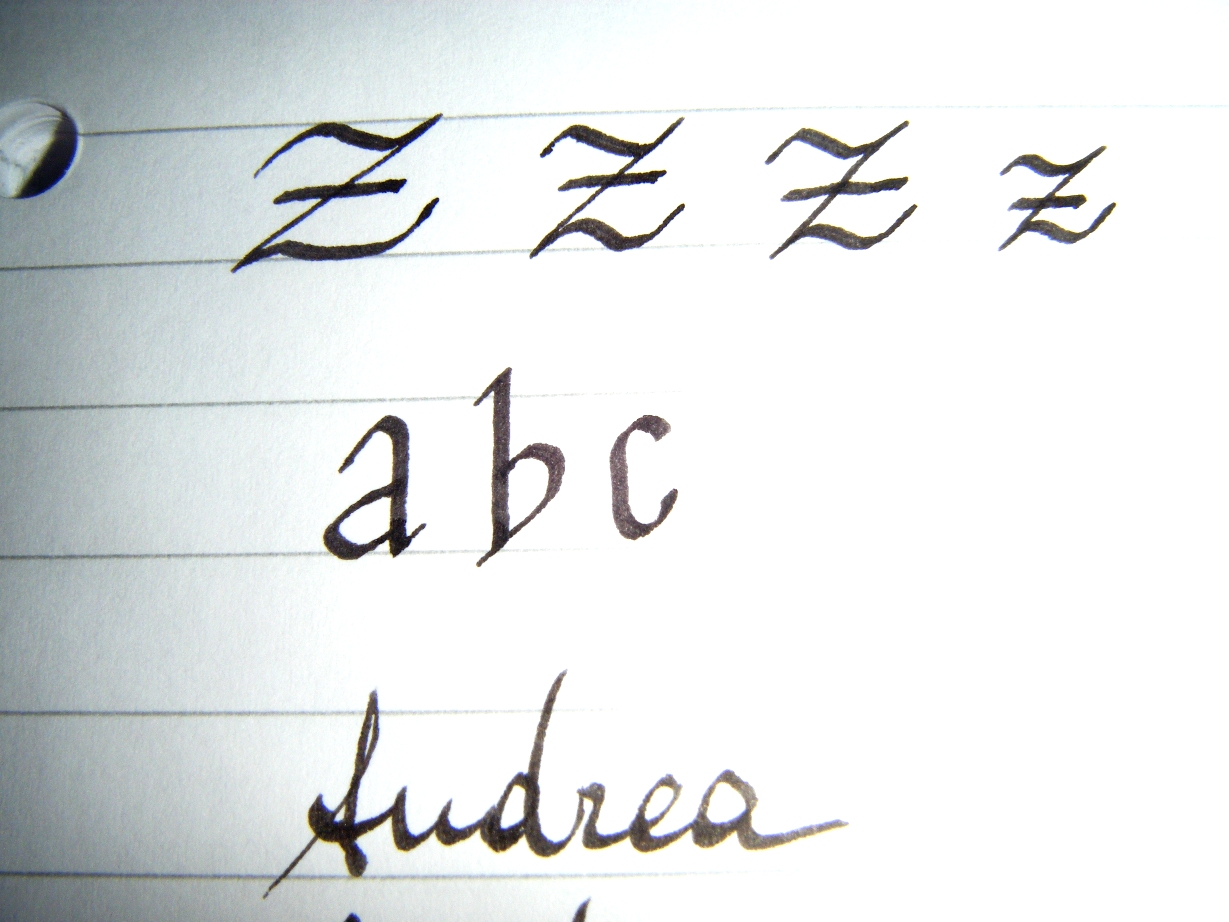 Z Z Z z
a b c
Andrea